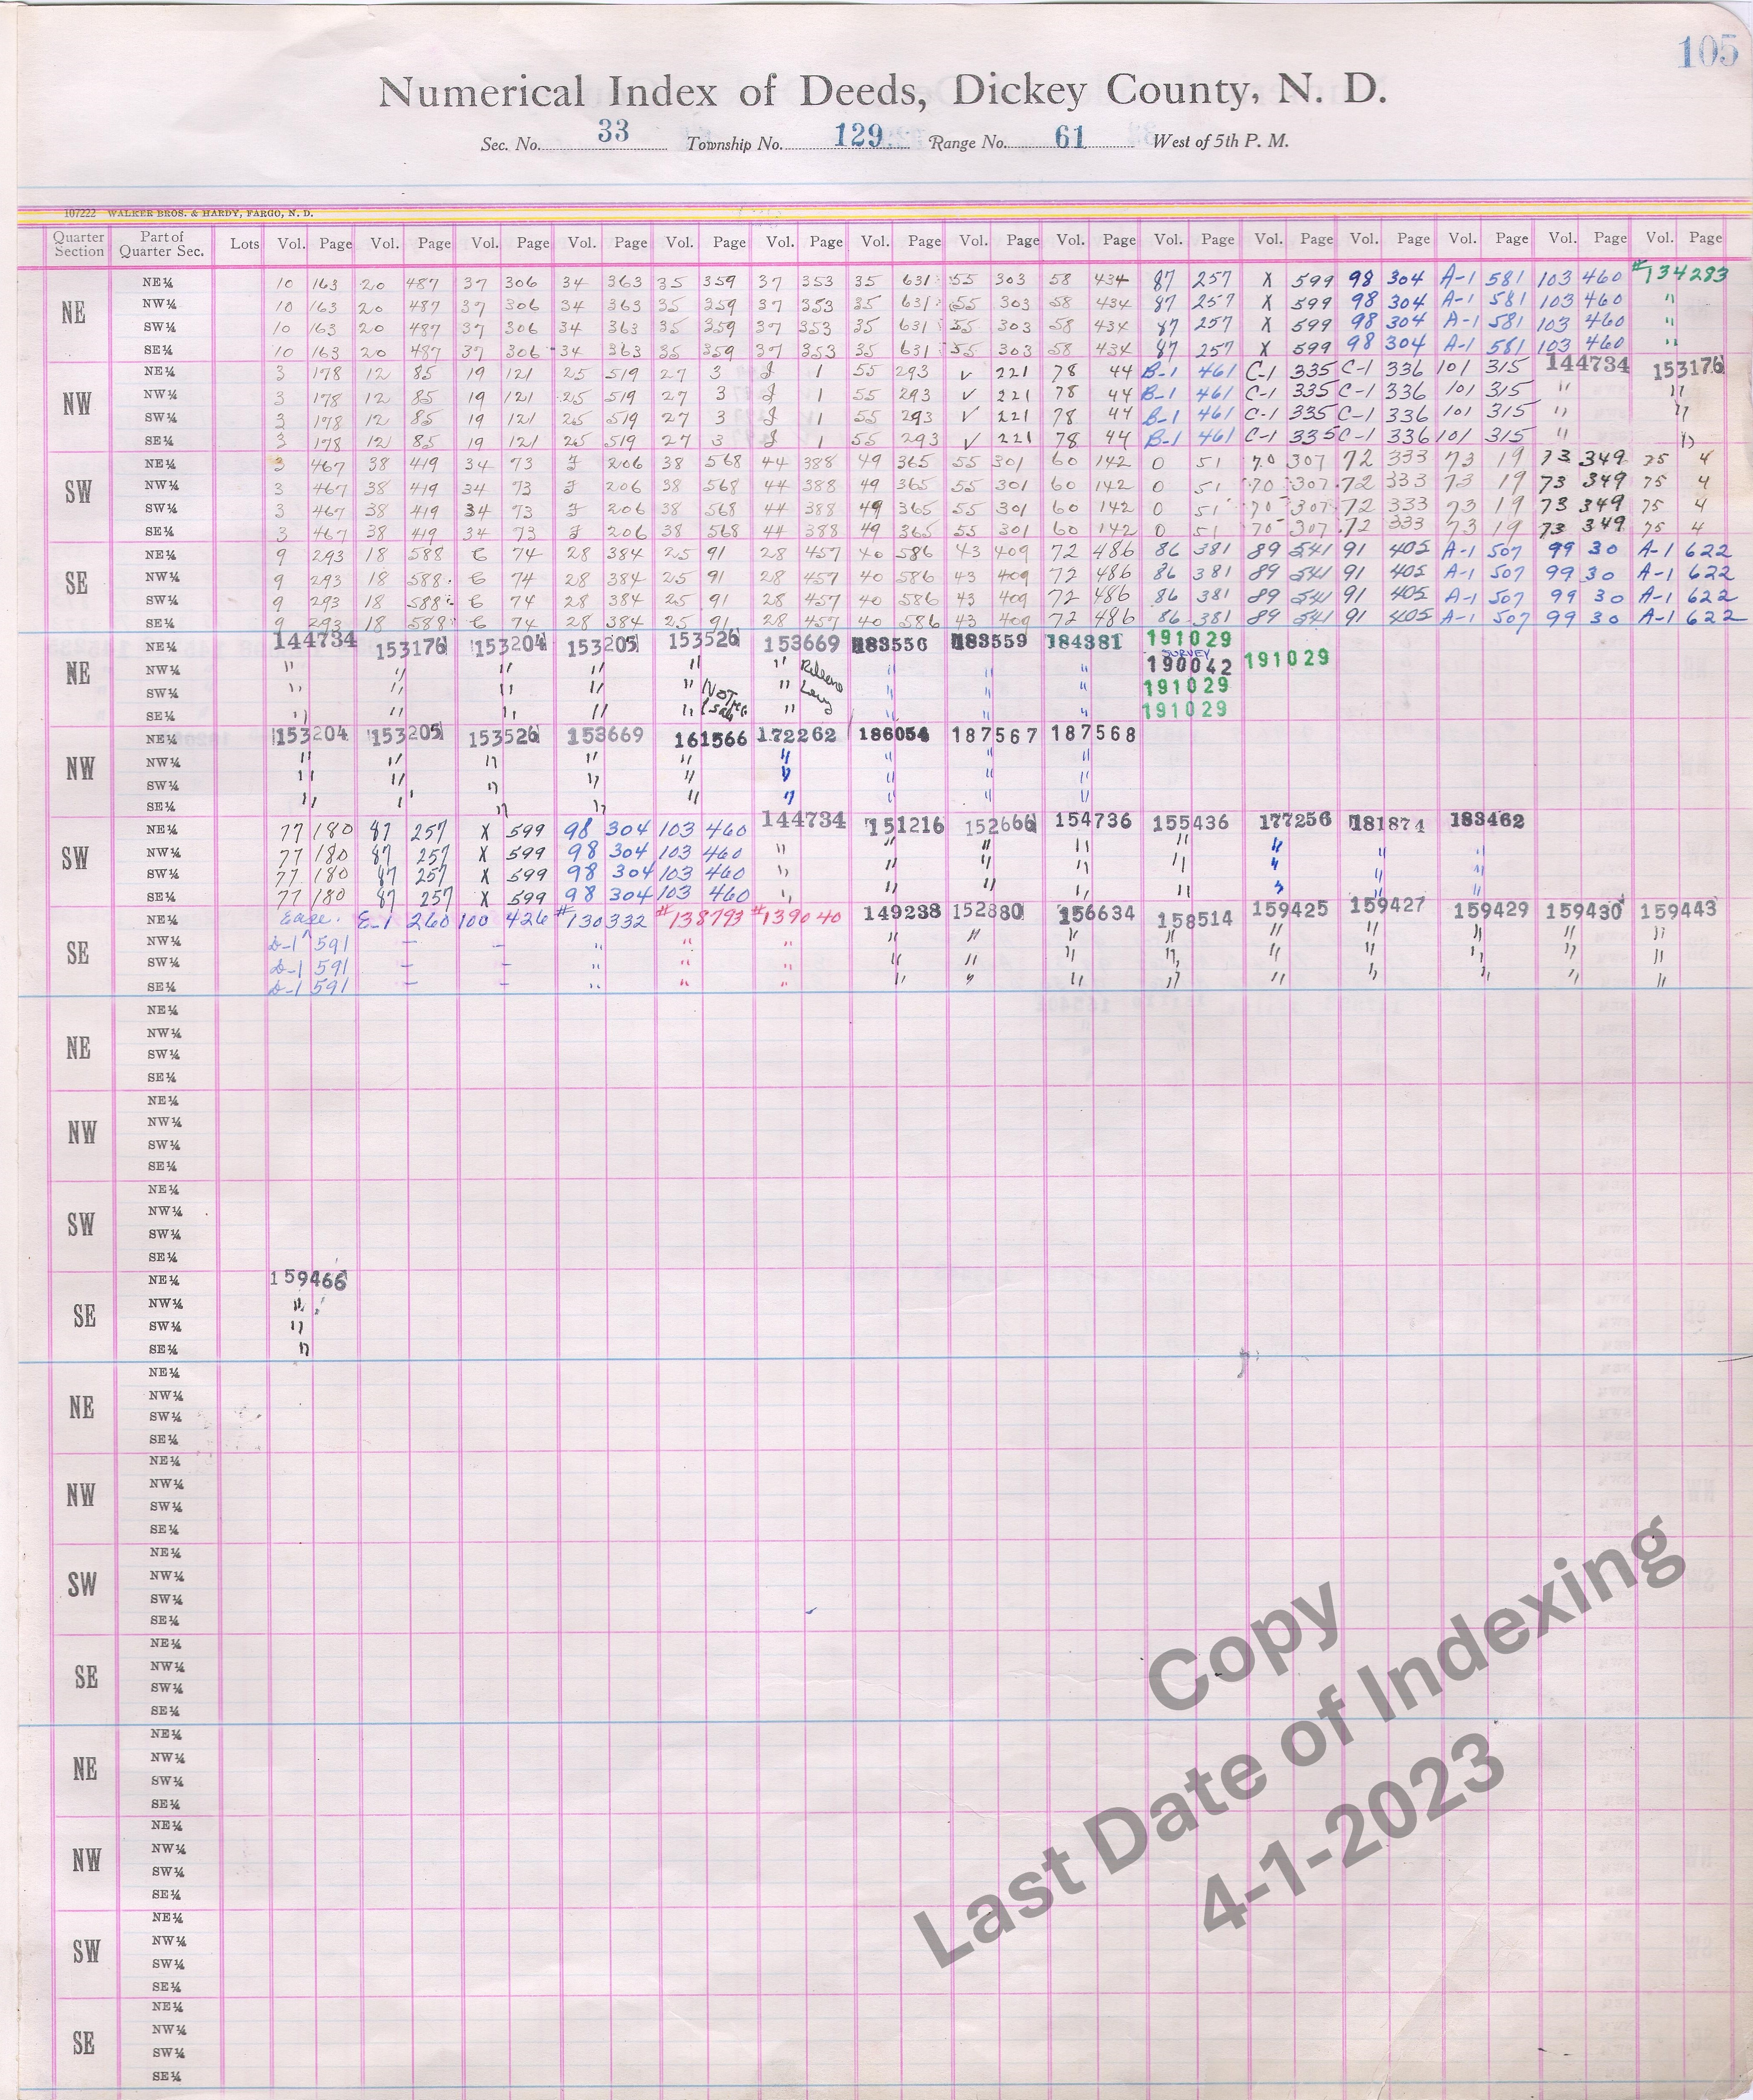 105
Numerical Index of Deeds, Dickey County, N. D.
Sec. No. 33 Township No. 129 Range No. 61 West of 5th P. M.
107222 WALKER BROS. & HARDY, FARGO, N. D.
Quarter Section Part of Quarter Sec. Lots Vol. Page Vol. Page Vol. Page Vol. Page Vol. Page Vol. Page Vol. Page Vol. Page Vol. Page Vol. Page Vol. Page Vol. Page Vol. Page Vol. Page Vol. Page
NE NE¼ 10 163 20 487 37 306 34 363 35 359 37 353 35 631 55 303 58 434 87 257 X 599 98 304 A-1 581 103 460 #134283
NW¼ 10 163 20 487 37 306 34 363 35 359 37 353 35 631 55 303 58 434 87 257 X 599 98 304 A-1 581 103 460 "
SW¼ 10 163 20 487 37 306 34 363 35 359 37 353 35 631 55 303 58 434 87 257 X 599 98 304 A-1 581 103 460 "
SE¼ 10 163 20 487 37 306 34 363 35 359 37 353 35 631 55 303 58 434 87 257 X 599 98 304 A-1 581 103 460 "
NW NE¼ 3 178 12 85 19 121 25 519 27 3 J 1 55 293 V 221 78 44 B-1 461 C-1 335 C-1 336 101 315 144734 153176
NW¼ 3 178 12 85 19 121 25 519 27 3 J 1 55 293 V 221 78 44 B-1 461 C-1 335 C-1 336 101 315 " "
SW¼ 3 178 12 85 19 121 25 519 27 3 J 1 55 293 V 221 78 44 B-1 461 C-1 335 C-1 336 101 315 " "
SE¼ 3 178 12 85 19 121 25 519 27 3 J 1 55 293 V 221 78 44 B-1 461 C-1 335 C-1 336 101 315 " "
SW NE¼ 3 467 38 419 34 73 J 206 38 568 44 388 49 365 55 301 60 142 O 51 70 307 72 333 73 19 73 349 75 4
NW¼ 3 467 38 419 34 73 J 206 38 568 44 388 49 365 55 301 60 142 O 51 70 307 72 333 73 19 73 349 75 4
SW¼ 3 467 38 419 34 73 J 206 38 568 44 388 49 365 55 301 60 142 O 51 70 307 72 333 73 19 73 349 75 4
SE¼ 3 467 38 419 34 73 J 206 38 568 44 388 49 365 55 301 60 142 O 51 70 307 72 333 73 19 73 349 75 4
SE NE¼ 9 293 18 588 C 74 28 384 25 91 28 457 40 586 43 409 72 486 86 381 89 541 91 405 A-1 507 99 30 A-1 622
NW¼ 9 293 18 588 C 74 28 384 25 91 28 457 40 586 43 409 72 486 86 381 89 541 91 405 A-1 507 99 30 A-1 622
SW¼ 9 293 18 588 C 74 28 384 25 91 28 457 40 586 43 409 72 486 86 381 89 541 91 405 A-1 507 99 30 A-1 622
SE¼ 9 293 18 588 C 74 28 384 25 91 28 457 40 586 43 409 72 486 86 381 89 541 91 405 A-1 507 99 30 A-1 622
NE NE¼ 144734 153176 153204 153205 153526 153669 183556 183559 184381 191029
NW¼ " " " " " " Release " " " SURVEY 190042 191029
SW¼ " " " " " Not " Levy " " " 191029
SE¼ " " " " " " " " " 191029
NW NE¼ 153204 153205 153526 153669 161566 172262 186054 187567 187568
NW¼ " " " " " " " " "
SW¼ " " " " " " " " "
SE¼ " " " " " " " " "
SW NE¼ 77 180 87 257 X 599 98 304 103 460 144734 151216 152666 154736 155436 177256 181874 183462
NW¼ 77 180 87 257 X 599 98 304 103 460 " " " " " " " "
SW¼ 77 180 87 257 X 599 98 304 103 460 " " " " " " " "
SE¼ 77 180 87 257 X 599 98 304 103 460 " " " " " " " "
SE NE¼ Ease. E-1 260 100 426 #130332 #138793 #139040 149238 152880 156634 158514 159425 159427 159429 159430 159443
NW¼ D-1 591 - - " " " " " " " " " " " "
SW¼ D-1 591 - - " " " " " " " " " " " "
SE¼ D-1 591 - - " " " " " " " " " " " "
NE NE¼
NW¼
SW¼
SE¼
NW NE¼
NW¼
SW¼
SE¼
SW NE¼
NW¼
SW¼
SE¼
SE NE¼ 159466
NW¼ "
SW¼ "
SE¼ "
NE NE¼
NW¼
SW¼
SE¼
NW NE¼
NW¼
SW¼
SE¼
SW NE¼
NW¼
SW¼
SE¼
SE NE¼
NW¼
SW¼
SE¼
NE NE¼
NW¼
SW¼
SE¼
NW NE¼
NW¼
SW¼
SE¼
SW NE¼
NW¼
SW¼
SE¼
SE NE¼
NW¼
SW¼
SE¼
Copy
Last Date of Indexing
4-1-2023